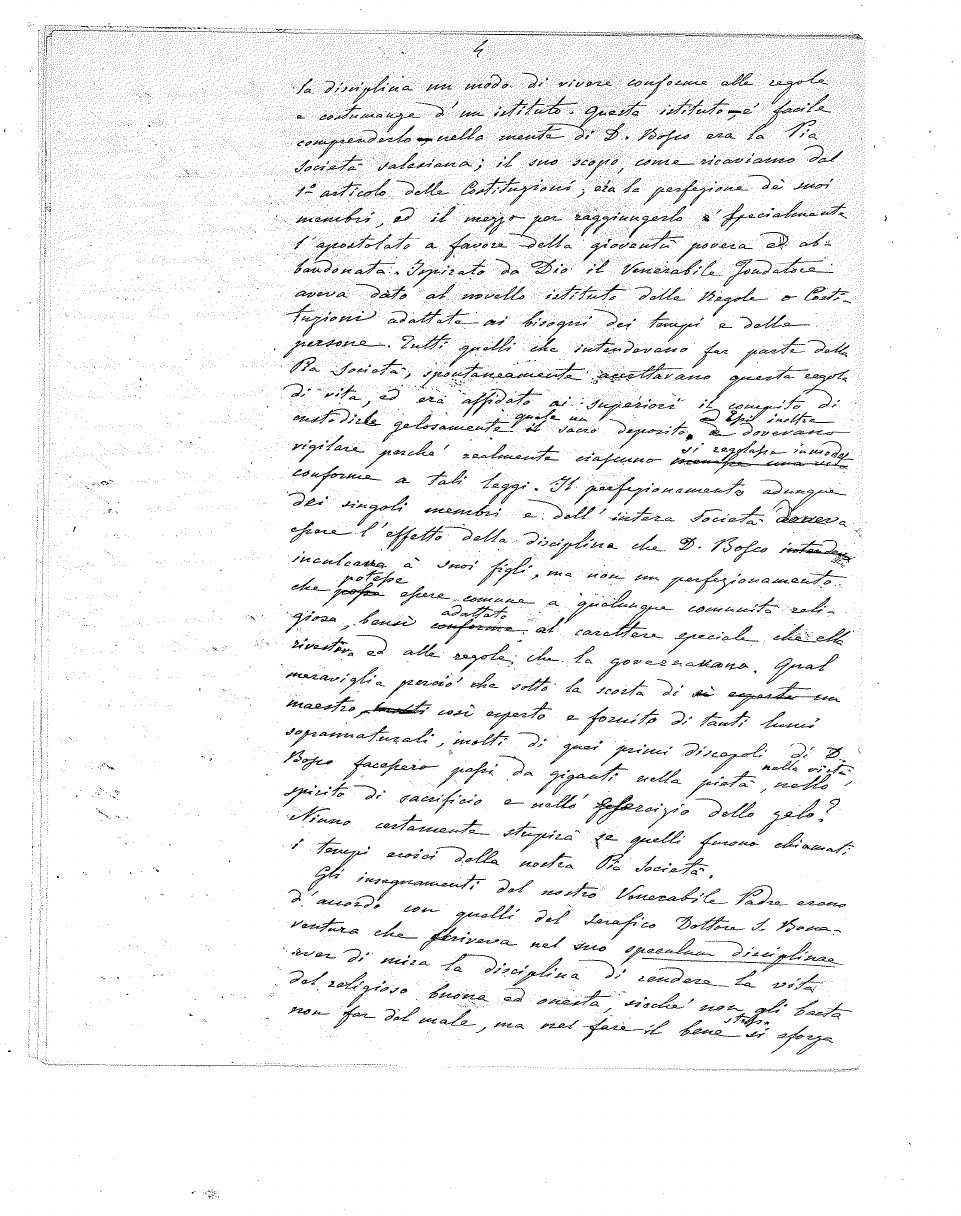 4
la disciplina un modo di vivere conforme alle regole
e costumanze d'un istituto. Questo istituto - è facile
comprenderlo - nella mente di D. Bosco era la Pia
Società salesiana; il suo scopo, come ricaviamo dal
1º articolo delle Costituzioni, era la perfezione de' suoi
membri, ed il mezzo per raggiungerlo è specialmente
l'apostolato a favore della gioventù povera ed ab-
bandonata. Ispirato da Dio il Venerabile Fondatore
aveva dato al novello istituto delle Regole o Costi-
tuzioni adattate ai bisogni dei tempi e delle
persone. Tutti quelli che intendevano far parte della
Pia Società, spontaneamente accettavano questa regola
di vita, ed era affidato ai superiori il compito di
custodirle gelosamente quale un il sacro deposito, ed essi inoltre e dovevano
vigilare perchè realmente ciascuno si regolasse in modo menasse una vita
conforme a tali leggi. Il perfezionamento adunque
dei singoli membri e dell'intera Società doveva
essere l'effetto della disciplina che D. Bosco intendeva
inculcava a' suoi figli, ma non un perfezionamento
che potesse possa essere comune a qualunque comunità reli-
giosa, bensì adattato conforme al carattere speciale che ella
rivestiva ed alle regole, che la governavano. Qual
meraviglia perciò che sotto la scorta di sì esperto un
maestro, così esperto e fornito di tanti lumi
soprannaturali, molti di quei primi discepoli di D.
Bosco facessero passi da giganti nella pietà, nella virtù, nello
spirito di sacrificio e nell'esercizio dello zelo?
Niuno certamente stupirà se quelli furono chiamati
i tempi eroici della nostra Pia Società.
Gli insegnamenti del nostro Venerabile Padre erano
d'accordo con quelli del serafico Dottore S. Bona-
ventura che scriveva nel suo speculum disciplinae
aver di mira la disciplina di rendere la vita
del religioso buona ed onesta, sicchè non gli basta
non far del male, ma nel fare il bene stesso si sforza